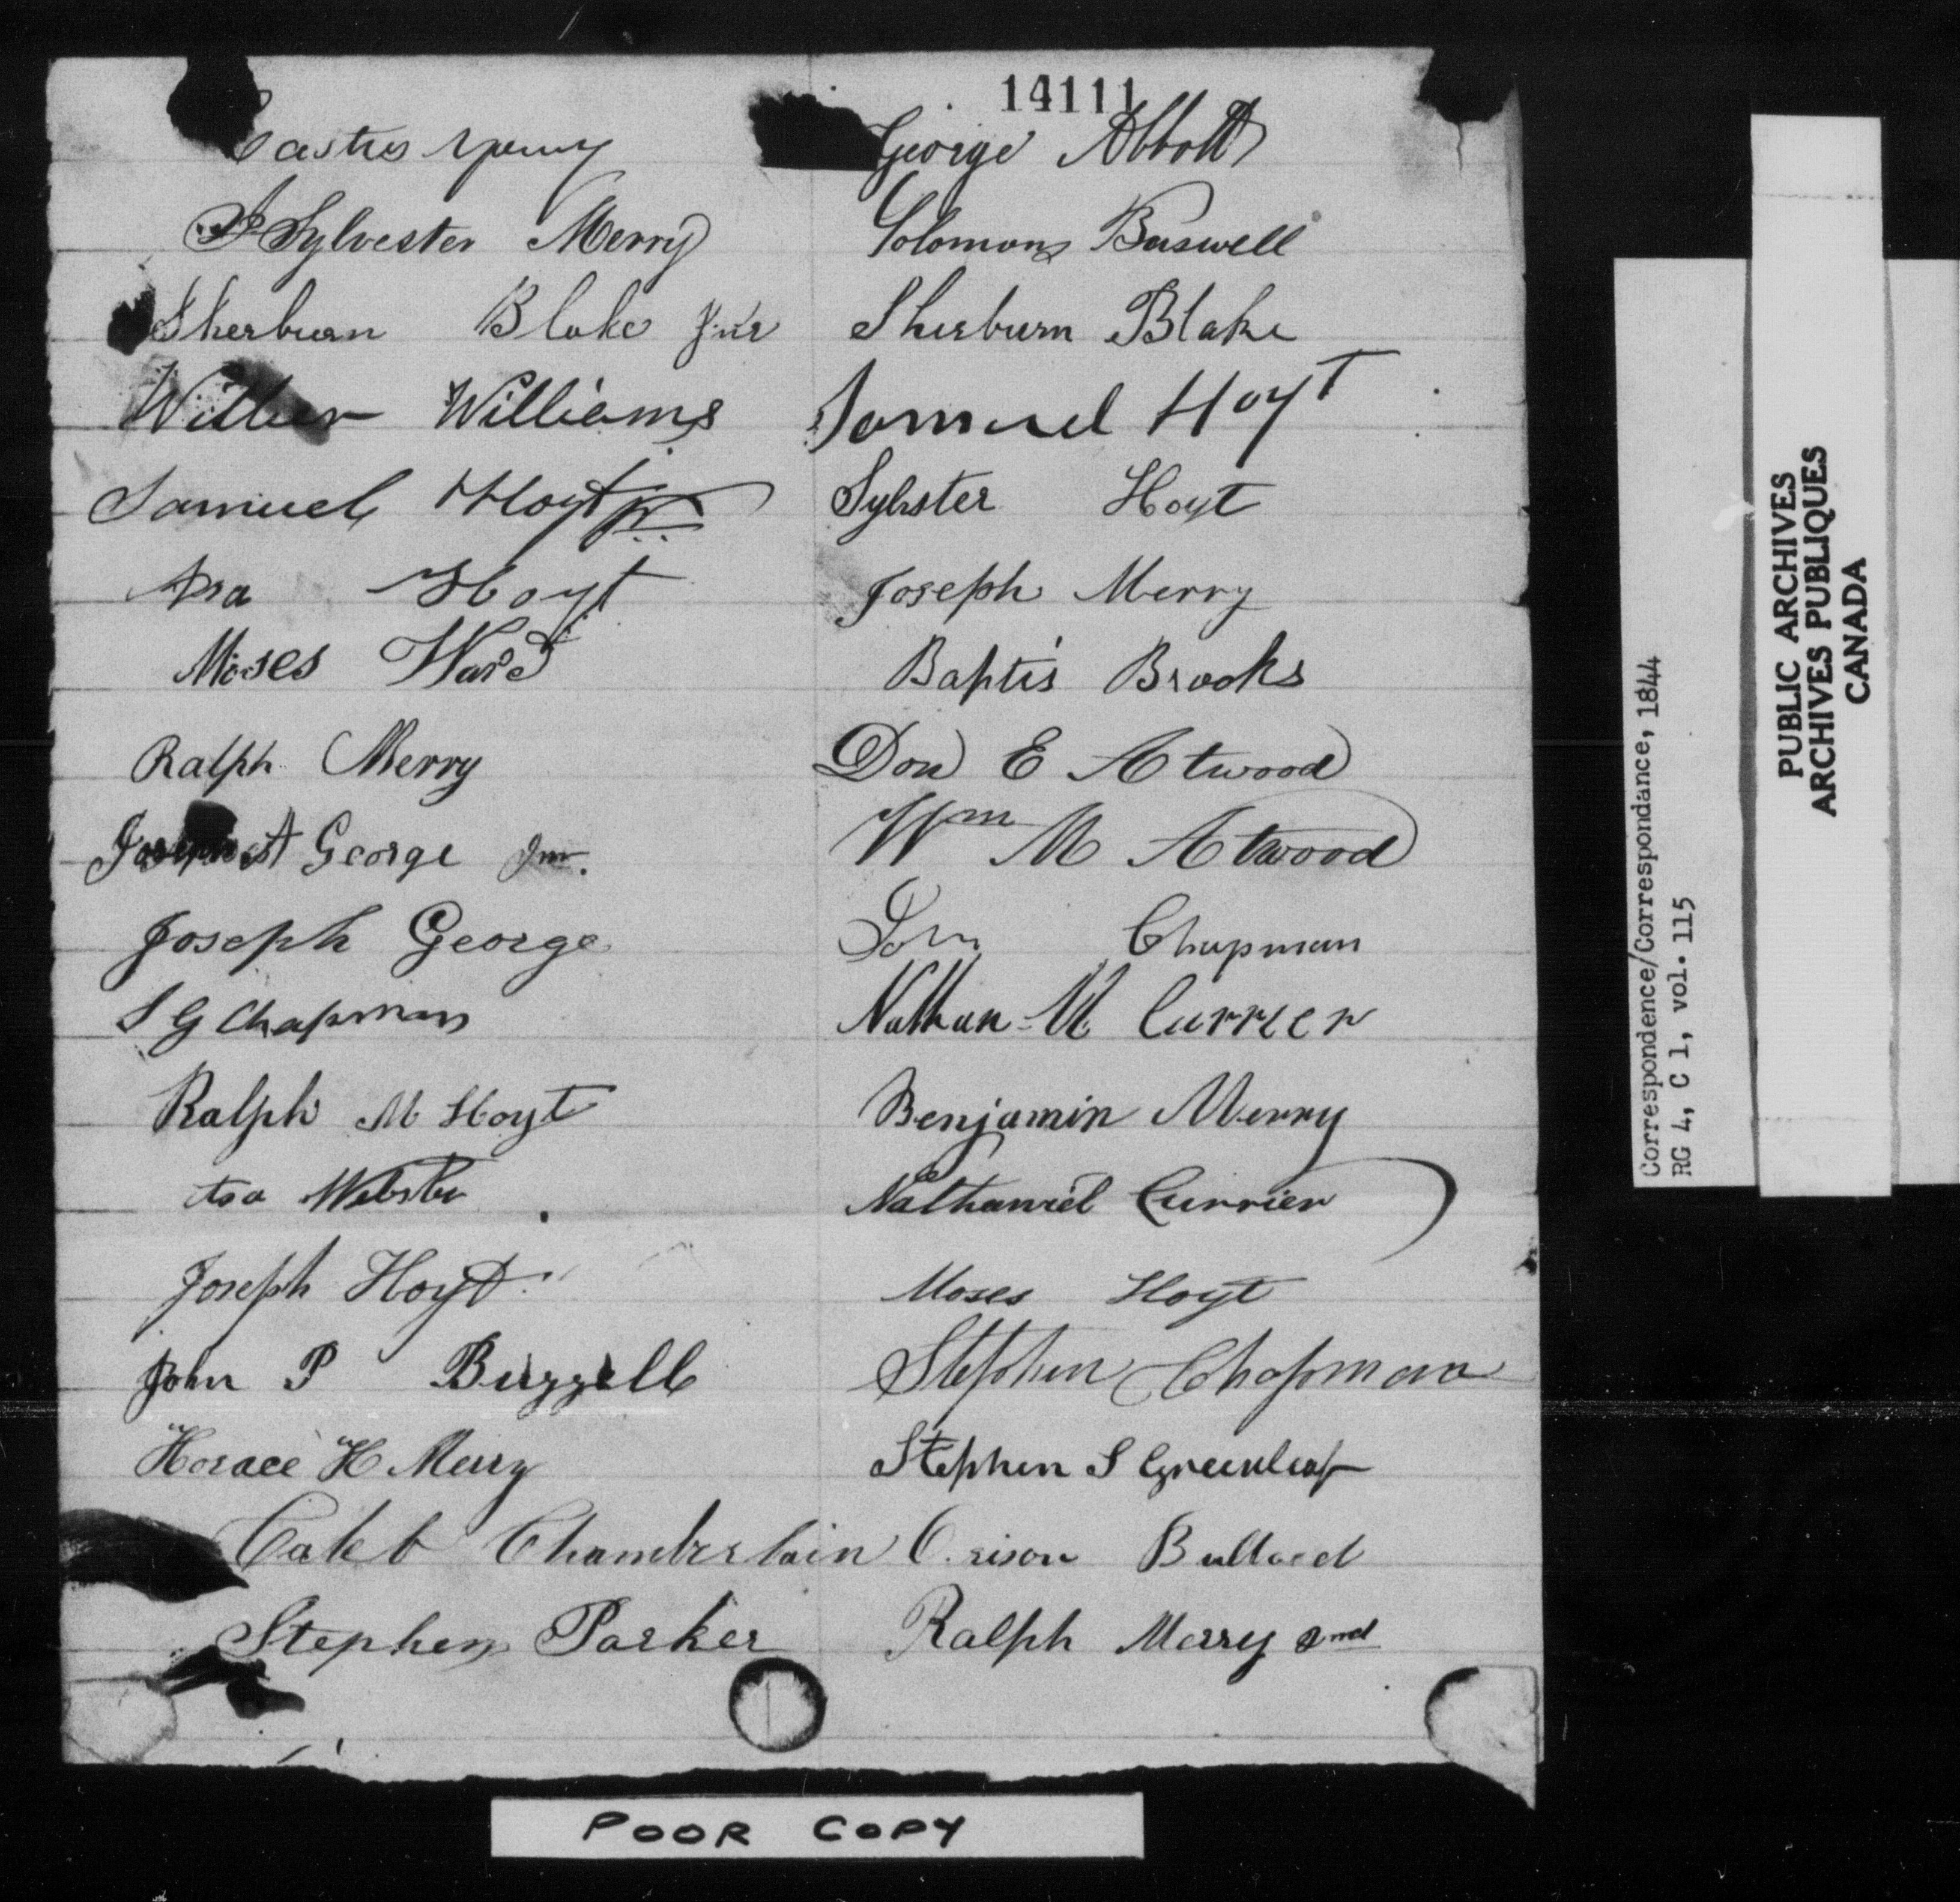 14111
George Abbott
Sylvester Merry
Solomon Buswell
Sherburn Blake Jnr
Sherburn Blake
Williams
Samuel Hoyt
Samuel Hoyt Jr
Sylvster Hoyt
Ira Hoyt
Joseph Merry
Moses Ward
Baptis Brooks
Ralph Merry
Don E Atwood
George Jnr.
Wm M Atwood
Joseph George
Chapman
S G Chapman
Nathan M Currier
Ralph M Hoyt
Benjamin Merry
Webster
Nathaniel Currier
Joseph Hoyt
Moses Hoyt
John P Buzzell
Stephen Chapman
Horace H Merry
Stephen S Greenleaf
Caleb Chamberlain
Orison Bullard
Stephen Parker
Ralph Merry 2nd
POOR COPY
Correspondence/Correspondance, 1844
RG 4, C 1, vol. 115
PUBLIC ARCHIVES
ARCHIVES PUBLIQUES
CANADA